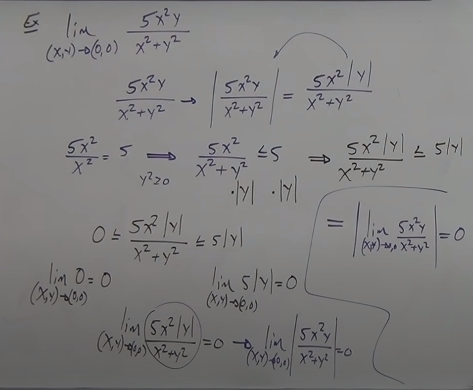 Ex lim (x,y)→(0,0) 5x²y / x²+y²
5x²y / x²+y² → | 5x²y / x²+y² | = 5x²|y| / x²+y²
5x² / x² = 5 ⟹ y²≥0 5x² / x²+y² ≤ 5 ⇒ 5x²|y| / x²+y² ≤ 5|y|
·|y| ·|y|
0 ≤ 5x²|y| / x²+y² ≤ 5|y|
= | lim (x,y)→(0,0) 5x²y / x²+y² | = 0
lim (x,y)→(0,0) 0 = 0 lim (x,y)→(0,0) 5|y| = 0
lim (x,y)→(0,0) 5x²|y| / x²+y² = 0 → lim (x,y)→(0,0) | 5x²y / x²+y² | = 0